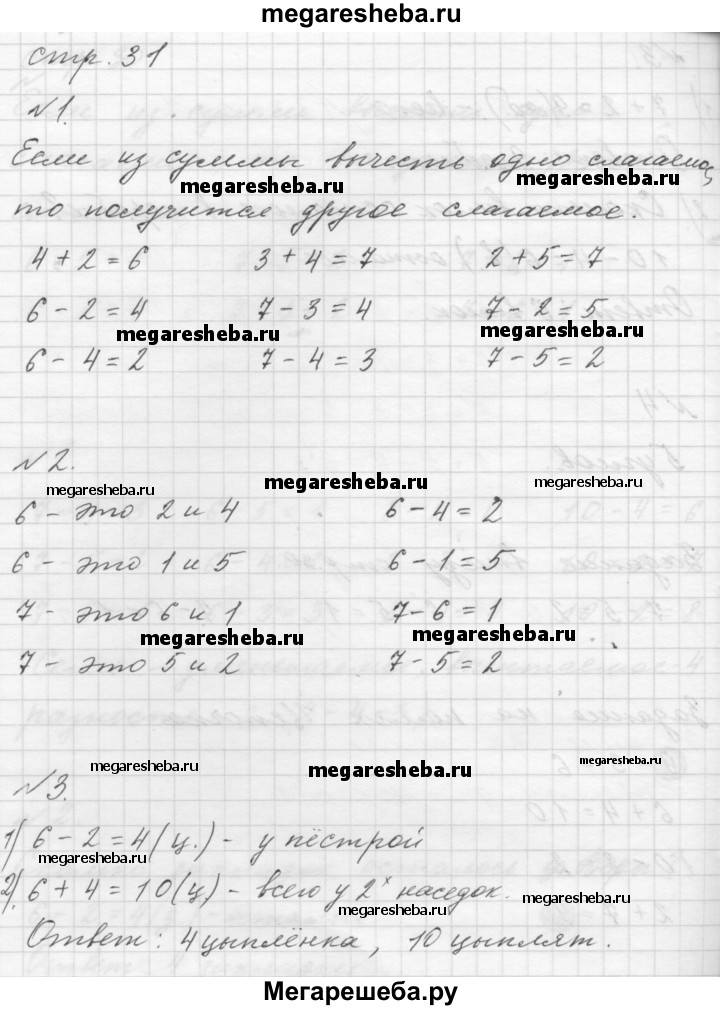 megaresheba.ru
стр. 31
№1.
Если из суммы вычесть одно слагаемо,
megaresheba.ru megaresheba.ru
то получится другое слагаемое.
4 + 2 = 6 3 + 4 = 7 2 + 5 = 7
6 - 2 = 4 7 - 3 = 4 7 - 2 = 5
megaresheba.ru megaresheba.ru
6 - 4 = 2 7 - 4 = 3 7 - 5 = 2
№2.
megaresheba.ru megaresheba.ru megaresheba.ru
6 - это 2 и 4 6 - 4 = 2
6 - это 1 и 5 6 - 1 = 5
7 - это 6 и 1 7 - 6 = 1
megaresheba.ru megaresheba.ru
7 - это 5 и 2 7 - 5 = 2
megaresheba.ru megaresheba.ru megaresheba.ru
№3.
1) 6 - 2 = 4 (ц.) - у пёстрой
megaresheba.ru megaresheba.ru
2) 6 + 4 = 10 (ц) - всего у 2х наседок.
megaresheba.ru megaresheba.ru
Ответ: 4 цыплёнка, 10 цыплят.
Мегарешеба.ру